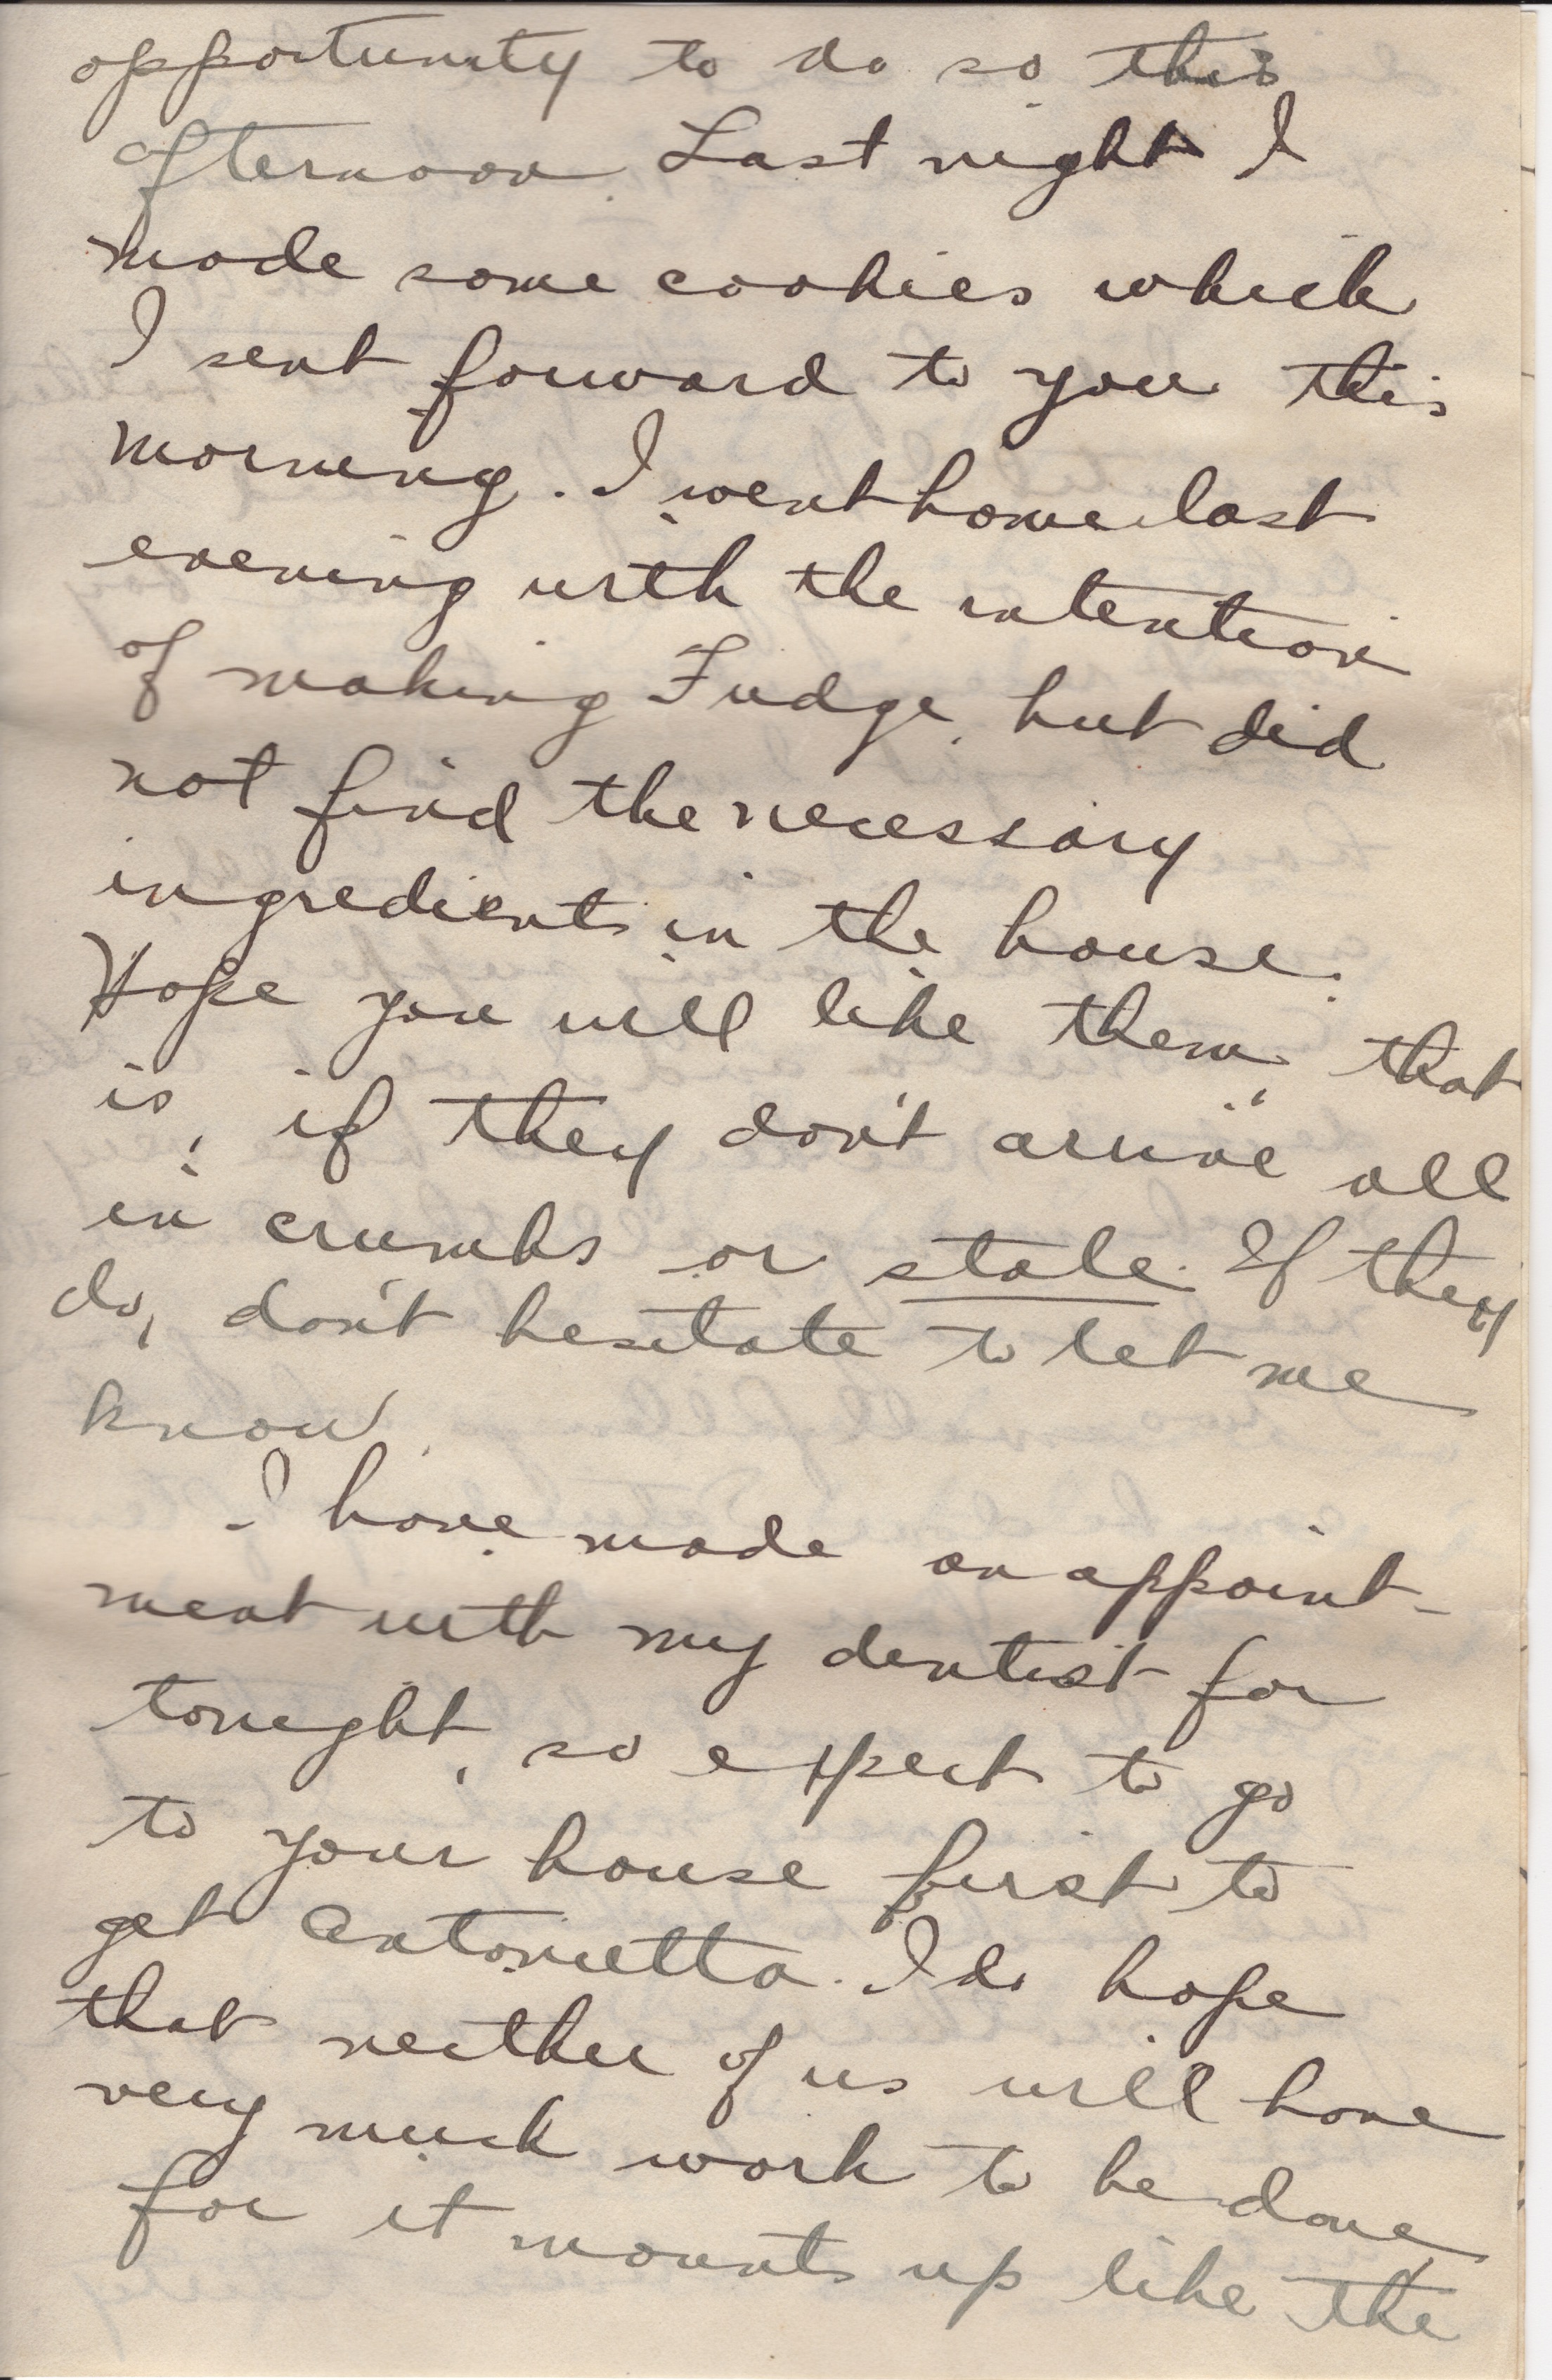 opportunity to do so this
afternoon. Last night I
made some cookies which
I sent forward to you this
morning. I went home last
evening with the intention
of making Fudge, but did
not find the necessary
ingredients in the house.
Hope you will like them, that
is, if they don't arrive all
in crumbs or stale. If they
do, don't hesitate to let me
know.
I have made an appoint-
ment with my dentist for
tonight, so expect to go
to your house first to
get Antonietta. I do hope
that neither of us will have
very much work to be done,
for it mounts up like the